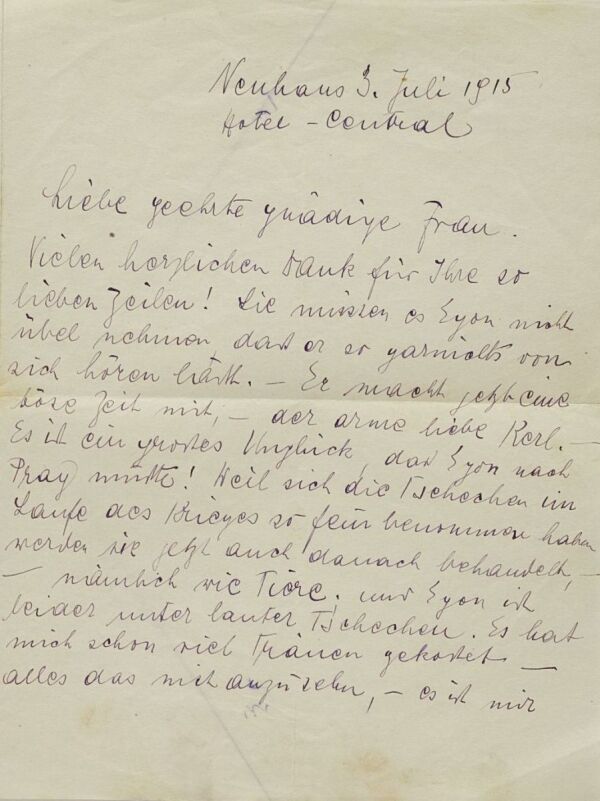 Neuhaus 3. Juli 1915
Hotel - Central
Liebe geehrte gnädige Frau.
Vielen herzlichen Dank für Ihre so
lieben Zeilen! Sie müssen es Egon nicht
übel nehmen das er so garnichts von
sich hören läßt. – Er macht jetzt eine
böse Zeit mit, – der arme liebe Kerl. –
Es ist ein großes Unglück, das Egon nach
Prag mußte! Weil sich die Tschechen im
Laufe des Krieges so fein benommen haben
werden sie jetzt auch danach behandelt, –
– nämlich wie Tiere. und Egon ist
leider unter lauter Tschechen. Es hat
mich schon viel Tränen gekostet –
alles das mit anzusehn, – es ist mir